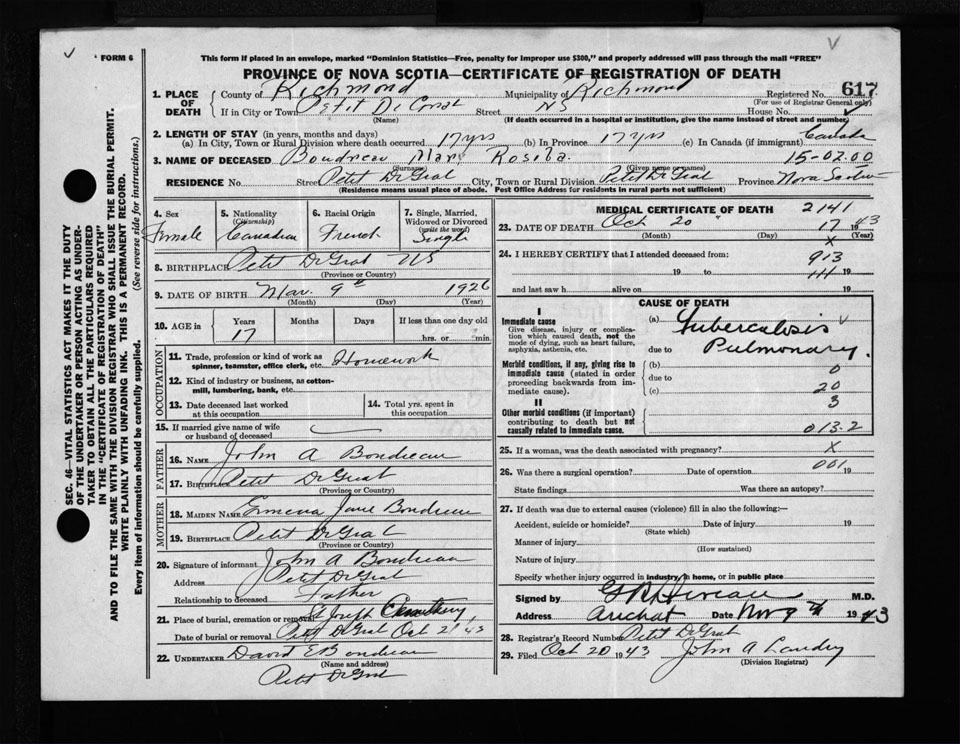 FORM 6
This form if placed in an envelope, marked "Dominion Statistics—Free, penalty for improper use $300," and properly addressed will pass through the mail "FREE"
PROVINCE OF NOVA SCOTIA—CERTIFICATE OF REGISTRATION OF DEATH
SEC. 46—VITAL STATISTICS ACT MAKES IT THE DUTY
OF THE UNDERTAKER OR PERSON ACTING AS UNDER-
TAKER TO OBTAIN ALL THE PARTICULARS REQUIRED
IN THE "CERTIFICATE OF REGISTRATION OF DEATH"
AND TO FILE THE SAME WITH THE DIVISION REGISTRAR WHO SHALL ISSUE THE BURIAL PERMIT.
WRITE PLAINLY WITH UNFADING INK. THIS IS A PERMANENT RECORD.
Every item of information should be carefully supplied. (See reverse side for instructions.)
1. PLACE OF DEATH
County of Richmond Municipality of Richmond Registered No. 617
(For use of Registrar General only)
If in City or Town Petit De Street NS House No.
(Name) (If death occurred in a hospital or institution, give the name instead of street and number)
2. LENGTH OF STAY (in years, months and days)
(a) In City, Town or Rural Division where death occurred 17 yrs (b) In Province 17 yrs (c) In Canada (if immigrant) Canada
3. NAME OF DECEASED Boudreau Mary Rosila 15-02.00
(Surname) (Given name or names)
RESIDENCE No. Street Petit De Grat City, Town or Rural Division Petit De Grat Province Nova Scotia
(Residence means usual place of abode. Post Office Address for residents in rural parts not sufficient)
4. Sex Female
5. Nationality (Citizenship) Canadian
6. Racial Origin French
7. Single, Married, Widowed or Divorced (write the word) Single
8. BIRTHPLACE Petit De Grat NS
(Province or Country)
9. DATE OF BIRTH Mar. 9th 1926
(Month) (Day) (Year)
10. AGE in Years 17 Months Days If less than one day old
hrs. or min.
OCCUPATION
11. Trade, profession or kind of work as spinner, teamster, office clerk, etc. Homework
12. Kind of industry or business, as cotton-mill, lumbering, bank, etc.
13. Date deceased last worked at this occupation
14. Total yrs. spent in this occupation
15. If married give name of wife or husband of deceased
FATHER
16. NAME John A Boudreau
17. BIRTHPLACE Petit De Grat
(Province or Country)
MOTHER
18. MAIDEN NAME Jane Boudreau
19. BIRTHPLACE Petit De Grat
(Province or Country)
20. Signature of informant John A Boudreau
Address Petit De Grat
Relationship to deceased Father
21. Place of burial, cremation or removal St Joseph Cemetery
Date of burial or removal Petit De Grat Oct 21 43
22. UNDERTAKER David E Boudreau
(Name and address)
Petit De Grat
MEDICAL CERTIFICATE OF DEATH 2141
23. DATE OF DEATH Oct 20 17 1943
(Month) (Day) (Year)
x
24. I HEREBY CERTIFY that I attended deceased from: 913
19 to 111 19
and last saw h alive on 19
CAUSE OF DEATH
I
Immediate cause
Give disease, injury or complication which caused death, not the mode of dying, such as heart failure, asphyxia, asthenia, etc.
(a) Tuberculosis
due to Pulmonary.
Morbid conditions, if any, giving rise to immediate cause (stated in order proceeding backwards from immediate cause).
(b) 0
due to
(c) 20
3
II
Other morbid conditions (if important) contributing to death but not causally related to immediate cause.
013.2
25. If a woman, was the death associated with pregnancy? X
26. Was there a surgical operation? Date of operation 001 19
State findings Was there an autopsy?
27. If death was due to external causes (violence) fill in also the following:—
Accident, suicide or homicide? Date of injury 19
(State which)
Manner of injury
(How sustained)
Nature of injury
Specify whether injury occurred in industry, in home, or in public place
Signed by M.D.
Address Arichat Date Nov 9th 1943
28. Registrar's Record Number Petit De Grat
29. Filed Oct 20 1943 John A Landry
(Division Registrar)